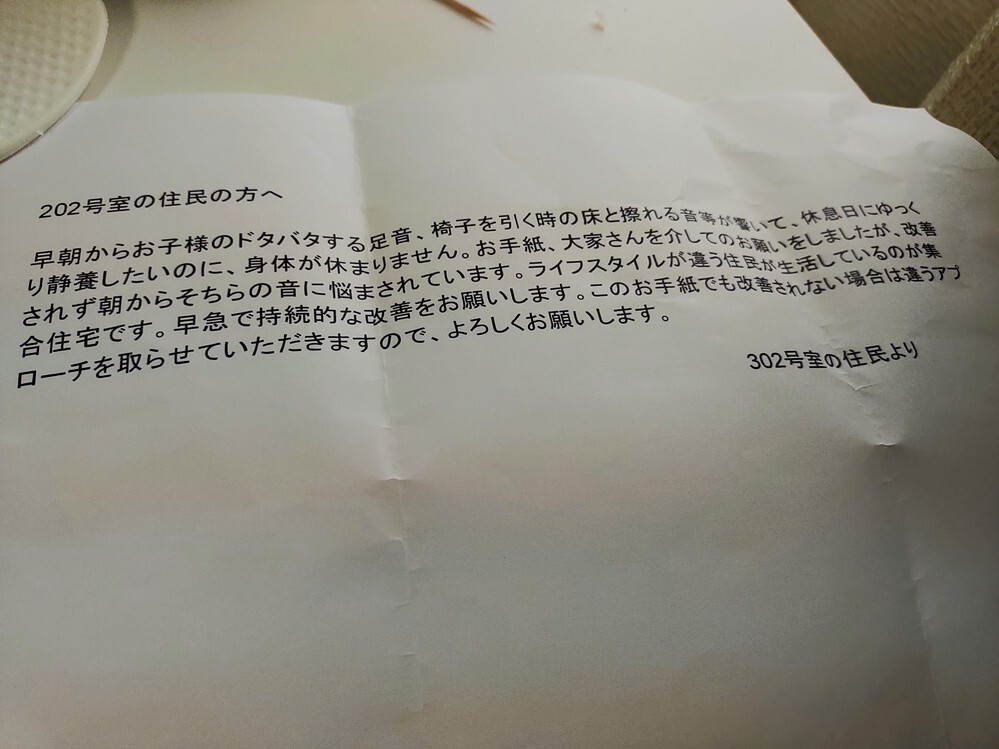 202号室の住民の方へ
早朝からお子様のドタバタする足音、椅子を引く時の床と擦れる音等が響いて、休息日にゆっく
り静養したいのに、身体が休まりません。お手紙、大家さんを介してのお願いをしましたが、改善
されず朝からそちらの音に悩まされています。ライフスタイルが違う住民が生活しているのが集
合住宅です。早急で持続的な改善をお願いします。このお手紙でも改善されない場合は違うアプ
ローチを取らせていただきますので、よろしくお願いします。
302号室の住民より